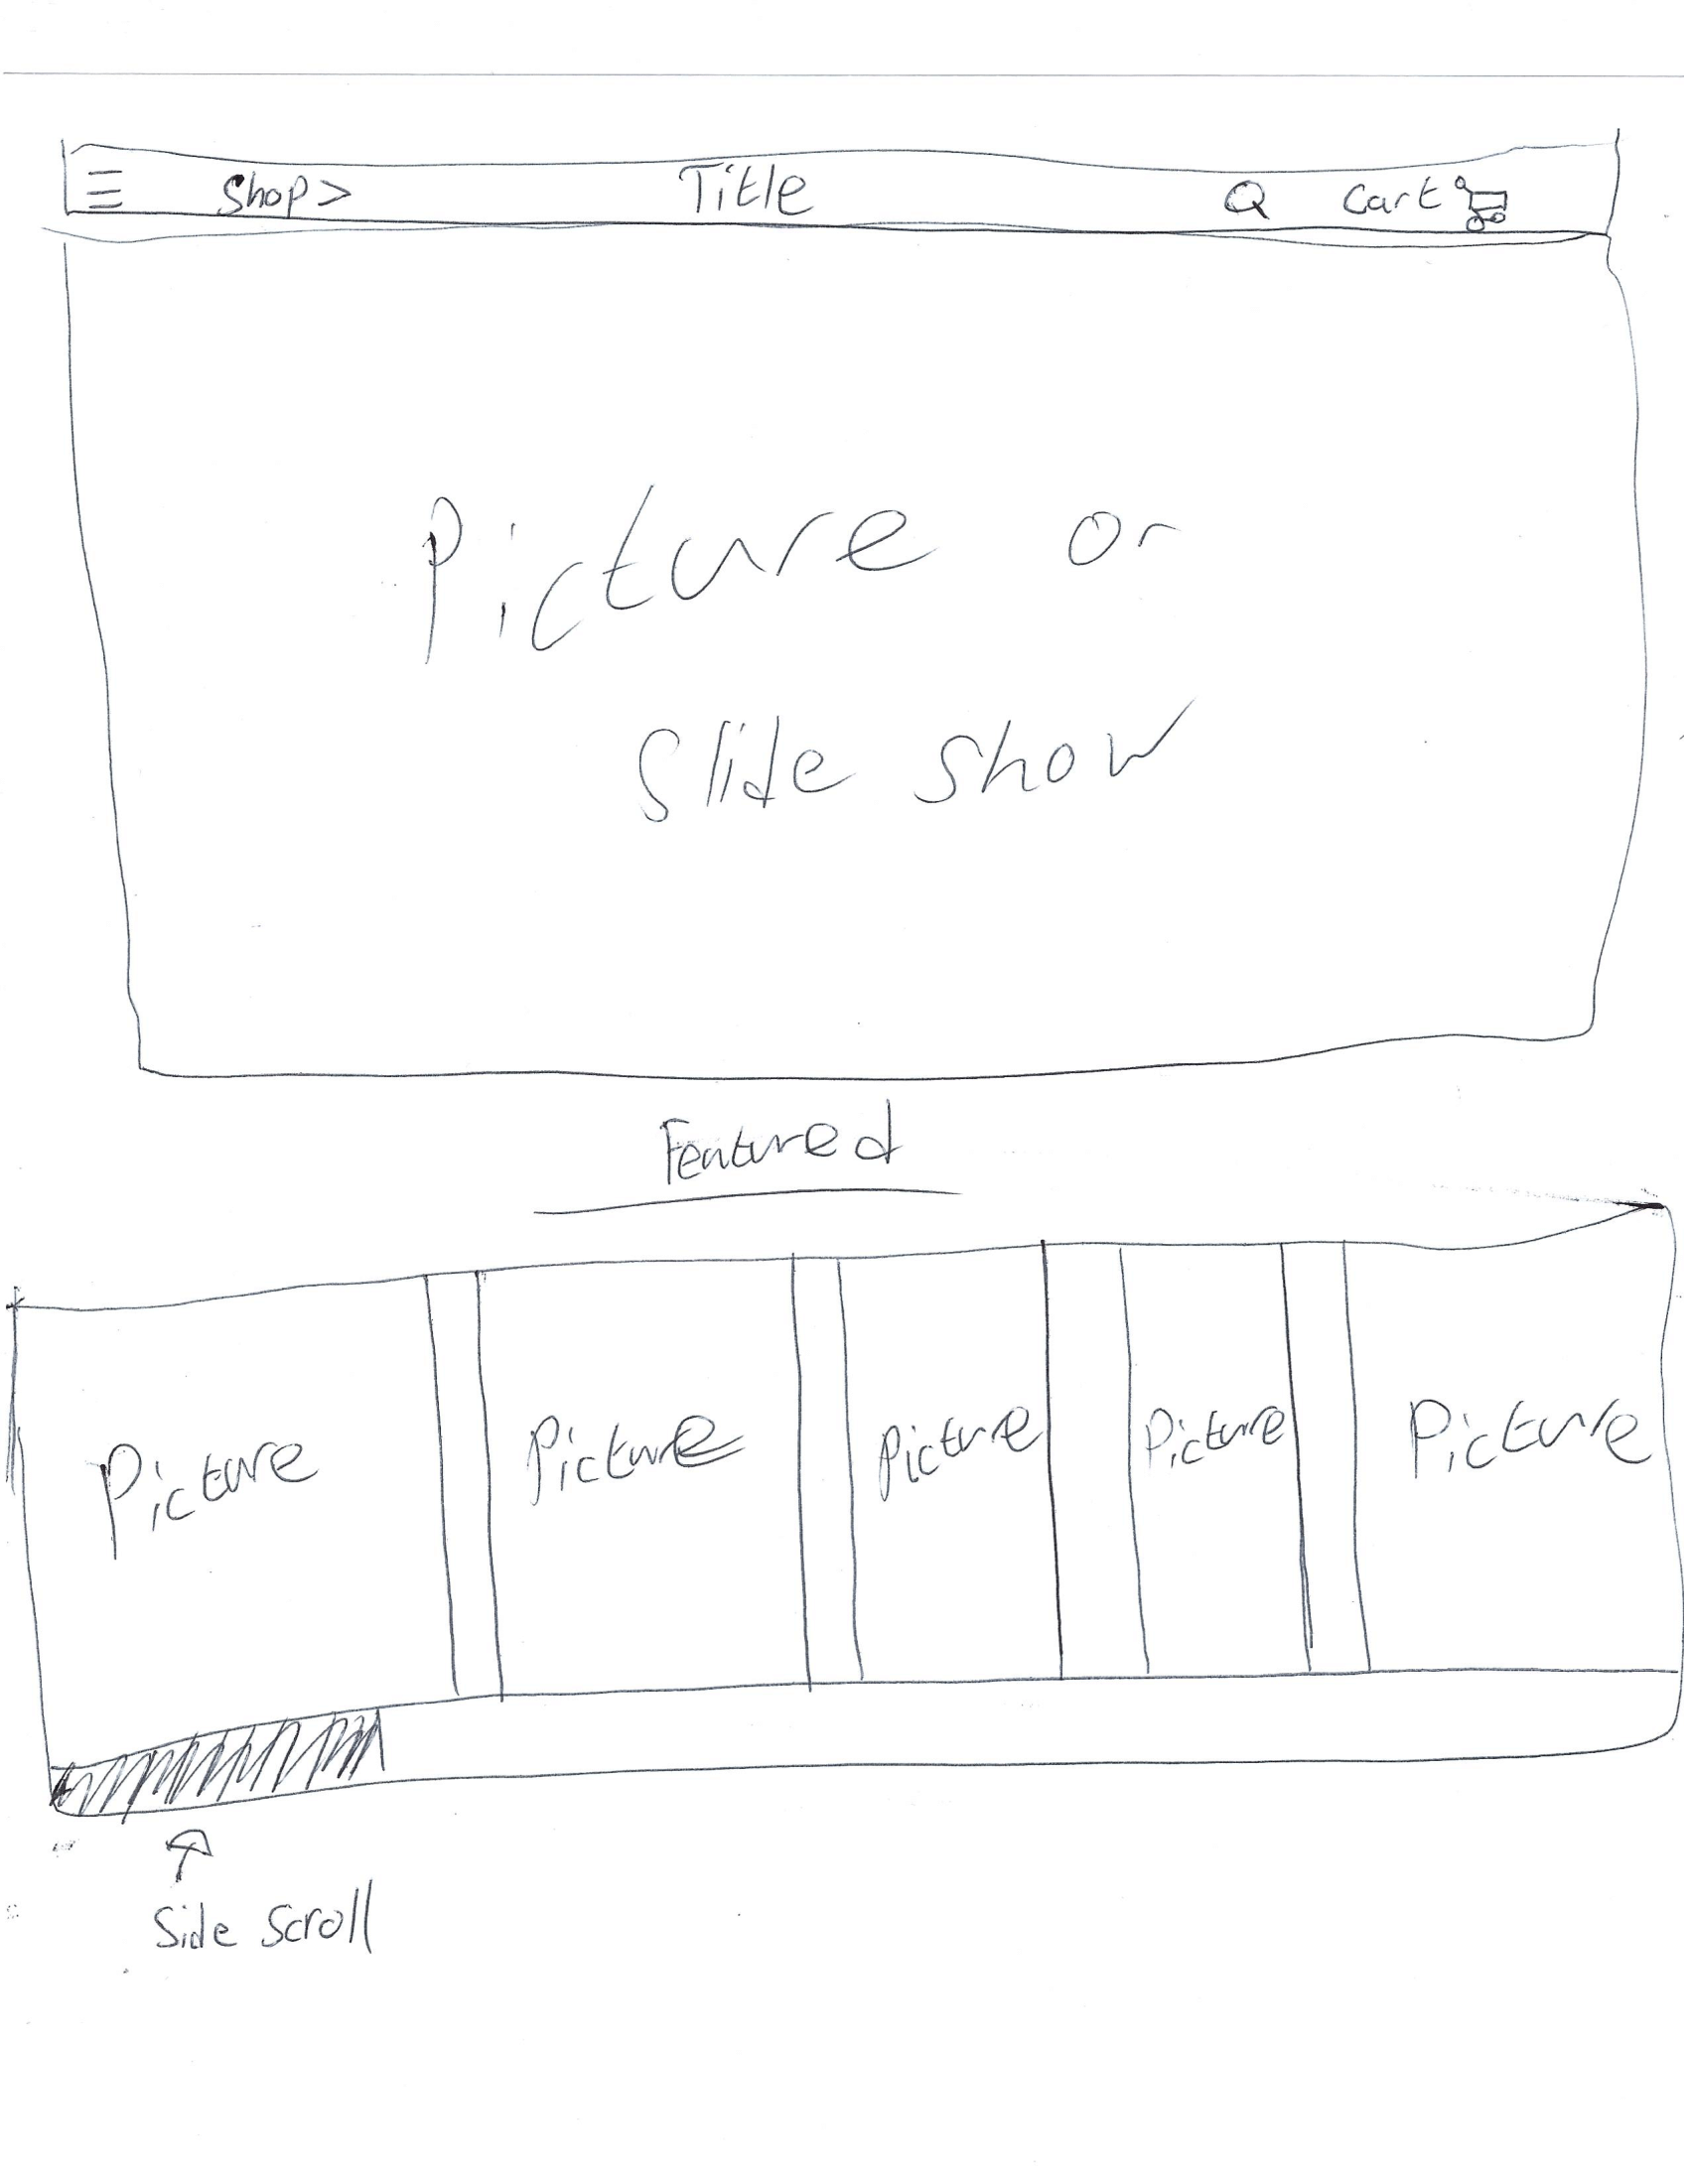 Shop> Title Cart
Picture or
Slide show
Featured
Picture Picture Picture Picture Picture
Side Scroll